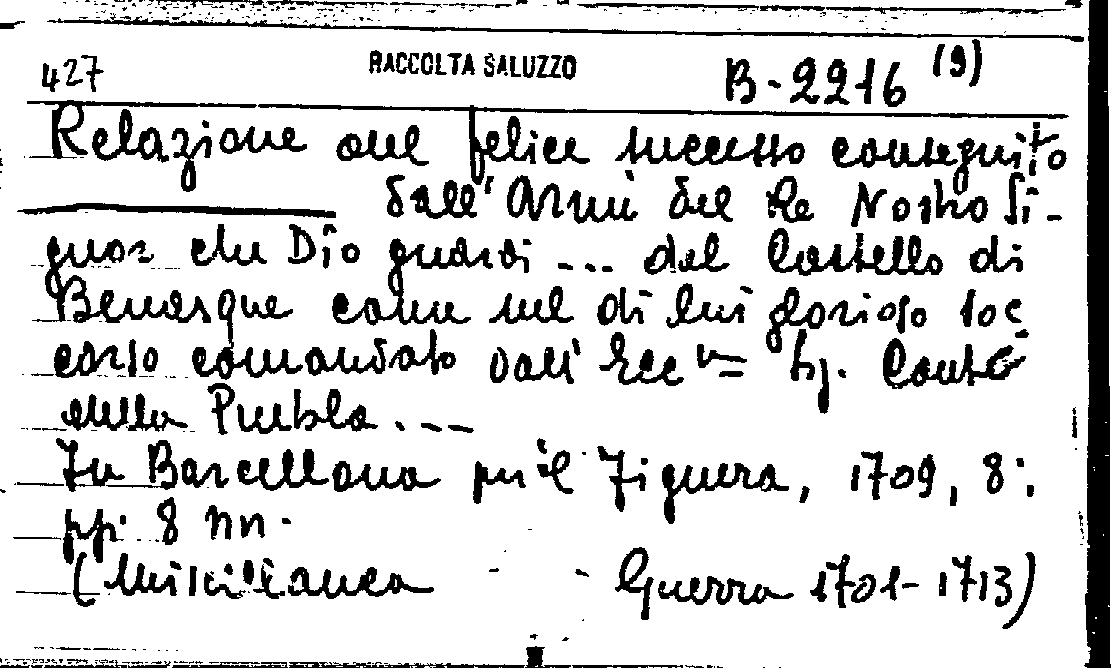 427 RACCOLTA SALUZZO B-2216 (9)
Relazione del felice successo conseguito
dall'Armi del Re Nostro Si-
gnor che Dio guardi ... dal Castello di
Benasque come nel di lui glorioso soc
corso comandato dall'Ecc.mo Sig. Conte
della Puebla . ---
In Barcellona per il Figuera, 1709, 8°,
pp. 8 nn.
(Miscellanea - - Guerra 1701-1713)